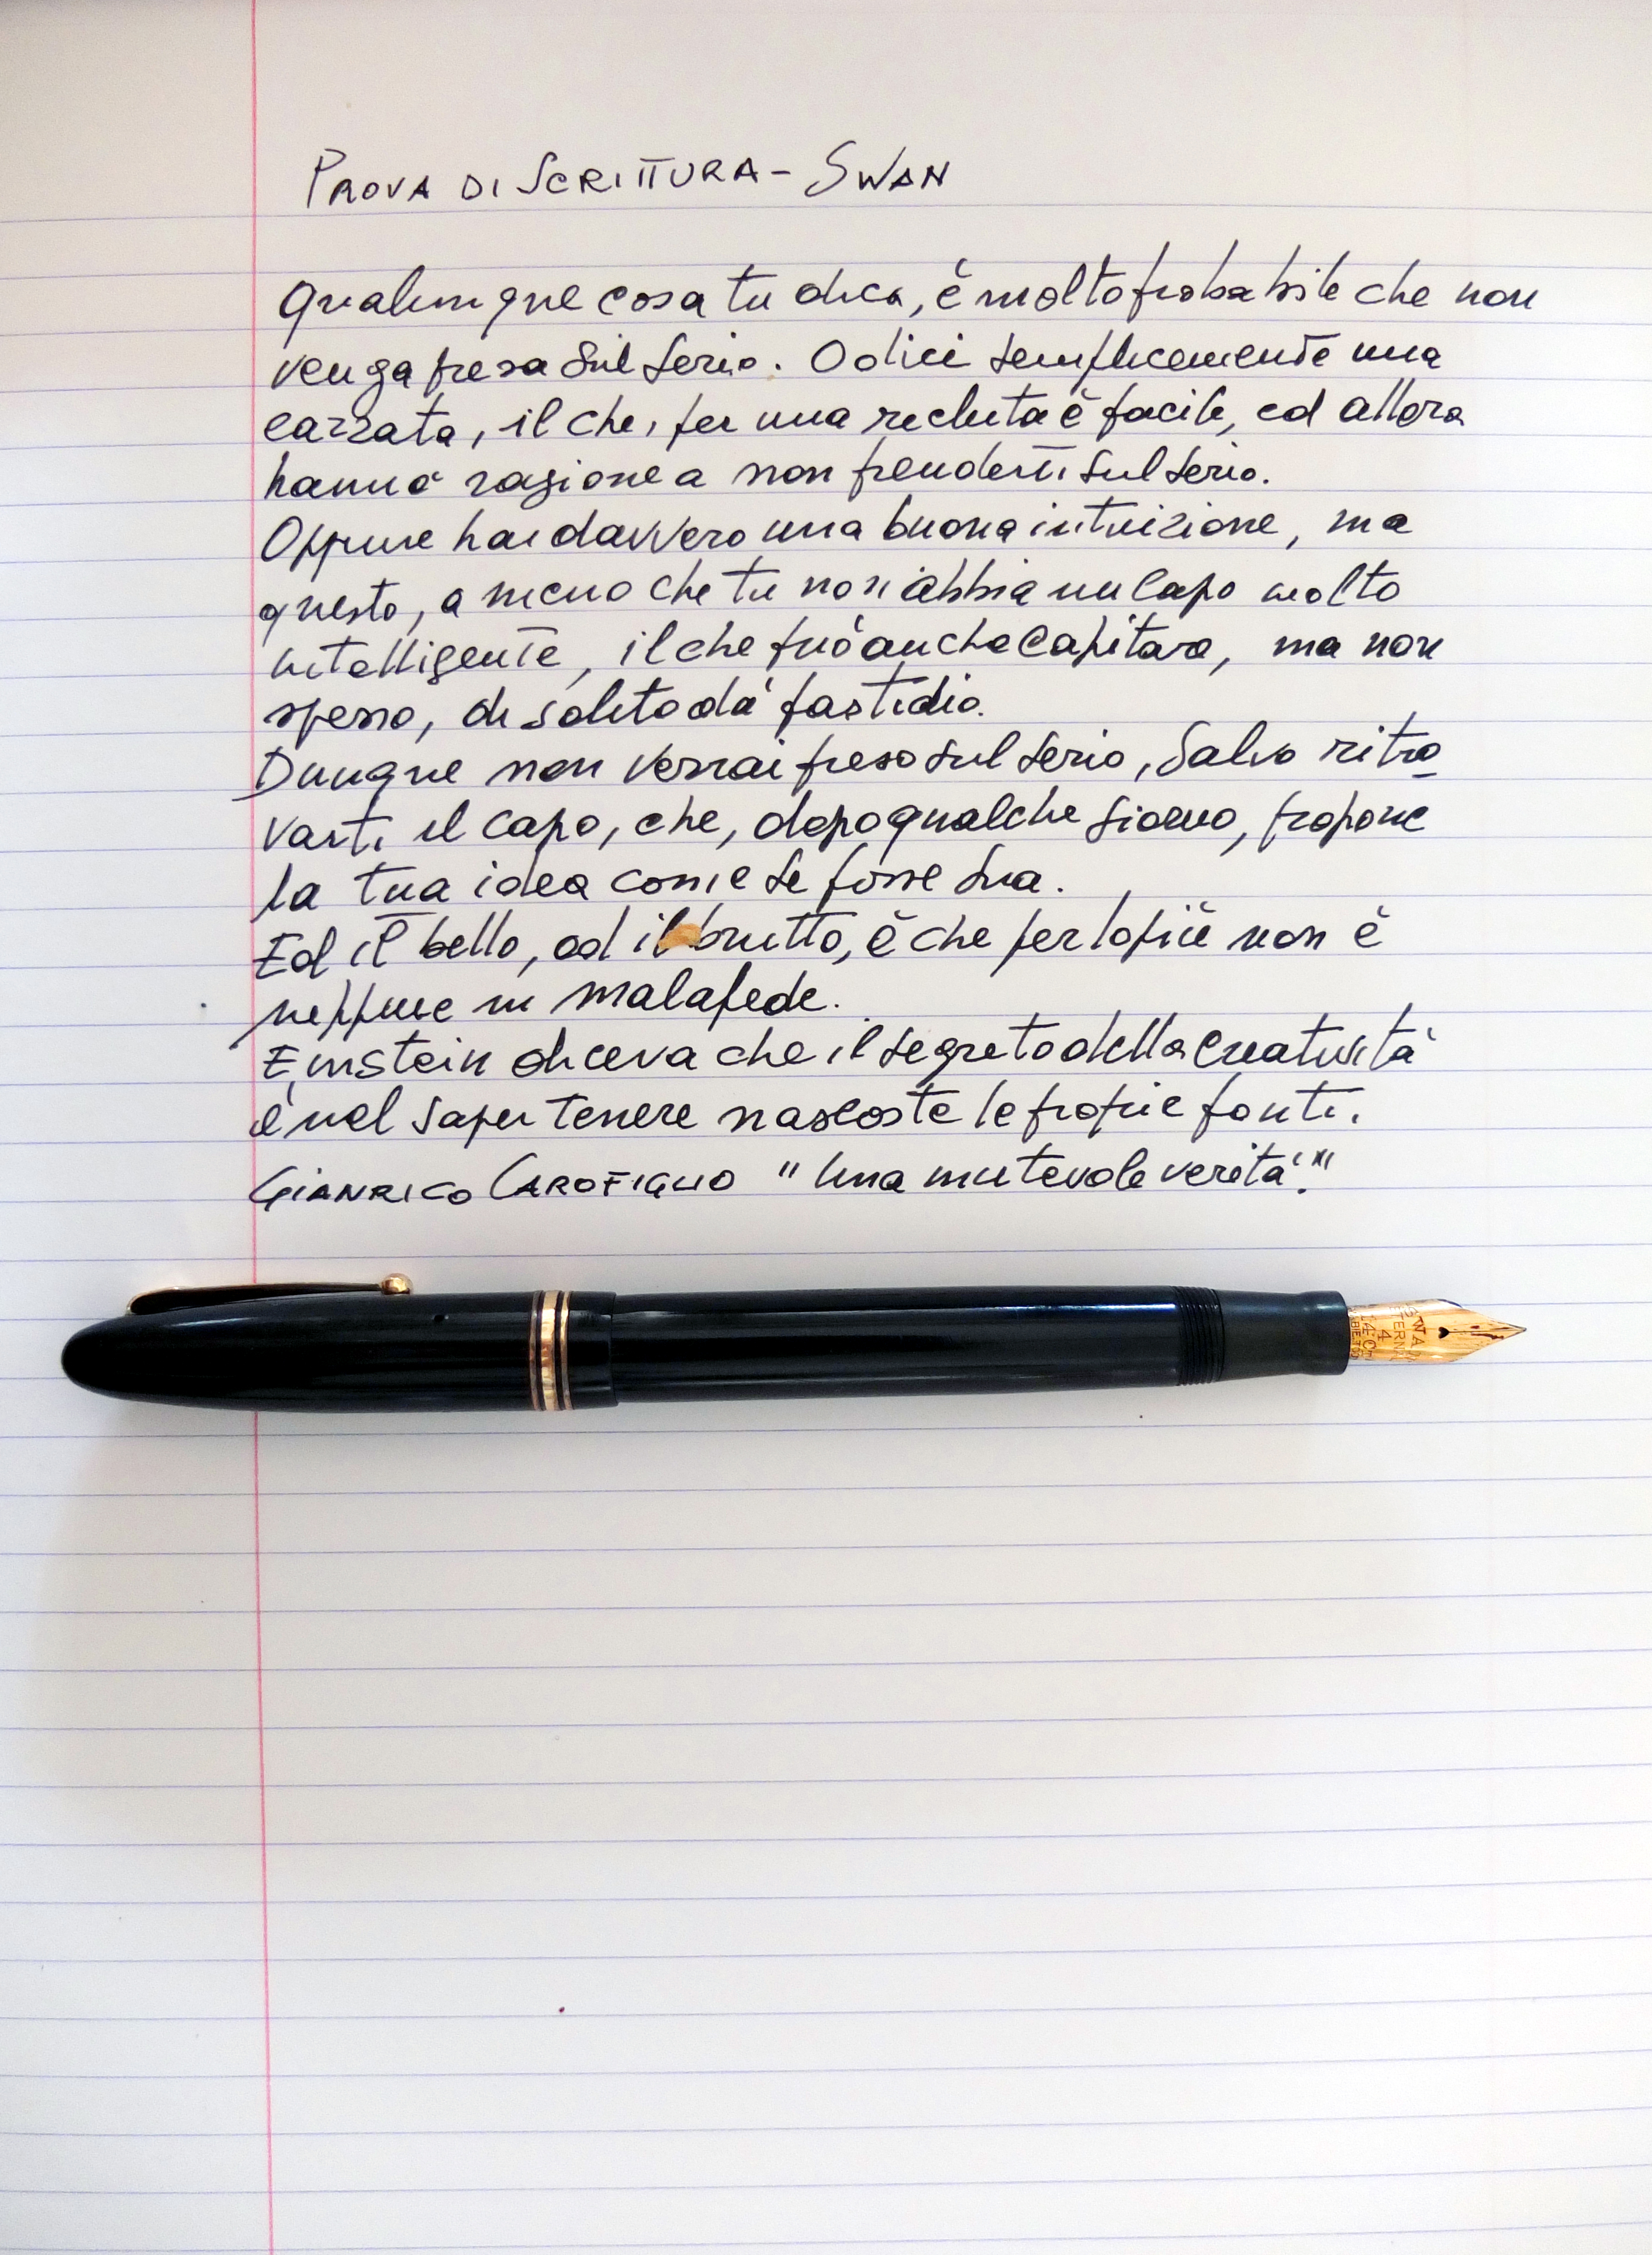 PROVA DI SCRITTURA - SWAN
Qualunque cosa tu dica, è molto probabile che non
venga presa sul serio. O dici semplicemente una
cazzata, il che, per una recluta è facile, ed allora
hanno ragione a non prenderti sul serio.
Oppure hai davvero una buona intuizione, ma
questo, a meno che tu non abbia un capo molto
intelligente, il che può anche capitare, ma non
spesso, di solito dà fastidio.
Dunque non verrai preso sul serio, salvo ritro
varti il capo, che, dopo qualche giorno, propone
la tua idea come se fosse sua.
Ed il bello, od il brutto, è che per lo più non è
neppure in malafede.
Einstein diceva che il segreto della creatività
è nel saper tenere nascoste le proprie fonti.
GIANRICO CAROFIGLIO "Una mutevole verità".
SWAN
4